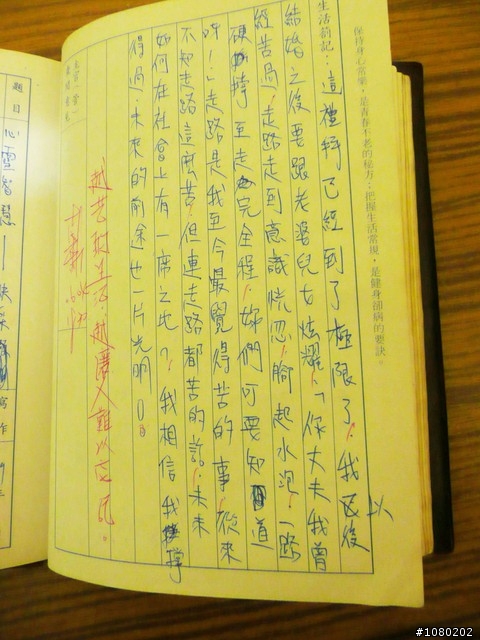 保持身心常樂，是青春不老的秘方；把握生活常規，是健身卻病的要訣。
生活箚記：這種行已經到了極限了，我以後
結婚之後要跟老婆兒女炫耀，「你丈夫我曾
經苦過，走路走到意識恍忽，腳起水泡，一路
硬撐至走完全程，妳們可要知道
呀！」走路是我至今最覺得苦的事，從來
不知走路這麼苦，但連走路都苦的話，未來
如何在社會上有一席之地？我相信我撐
得過，未來的前途也一片光明！
越苦的生活，越讓人難以忘記。
題目
心靈智慧
寫作
#1080202